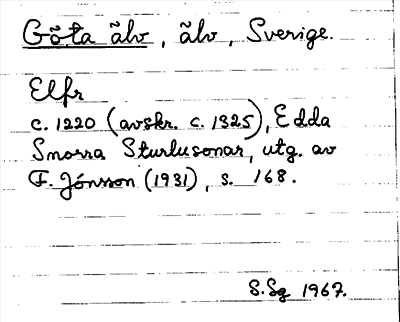 Göta älv, älv, Sverige.
Elfr
c. 1220 (avskr. c. 1325), Edda
Snorra Sturlusonar, utg. av
F. Jónsson (1931), s. 168.
S.Sg 1967.